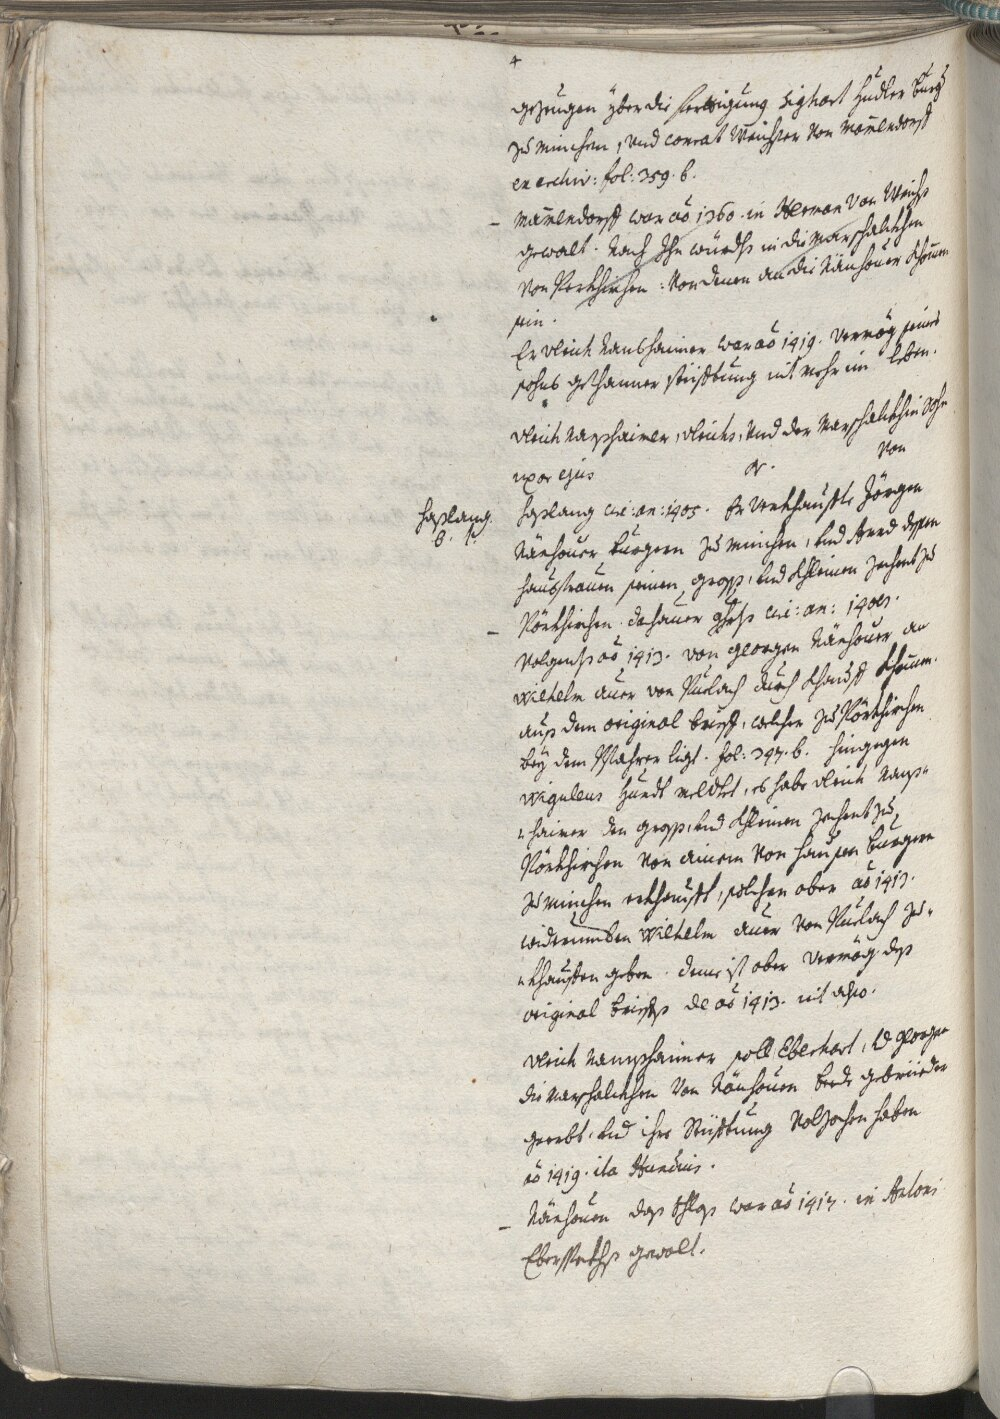 4
gezeugen yber die ferttigung Sighart Hudler Burg
zu München, und Conrat Weichser von Mamendorff
ex archiv: fol: 359. b.
– Mamendorff war ao 1360. in Herman von Weichs
gewalt. Nach Ihm würdts in die Marschalckhen
von : von denen an die Nänhover khomen
sein.
Er Ulrich Nanshaimer war ao 1419. vermög seines
sohns gethanner Stüfftung nit mehr im leben.
Ulrich Nanshaimer, Ulrichs, und der Marschalckhin Sohn
uxor ejus N. von
Haslang circ: an: 1405. Er verkhauffte Jörgen
Haslang.
Nänhover Burgern zu München, und Anna dessen
hausfrauen seinen gross, und khleinen zechent zu
– Pörkhirchen dachauer circ: an: 1405.
Volgents ao 1413. von Georgen Nänhover an
Wilhelm Auer von Pürlach durch khauff khomen.
aus dem original brieff, welcher zu Pörkhirchen
bey dem Pfahrer ligt. fol: 397. b. Hingegen
Wiguleus Hundt meldtet, es habe Ulrich Nans„
„haimer den gross, und khleinen zechent zu
Pörkhirchen von ainem von Hausen Burgern
zu München erkhaufft, solchen aber ao 1413.
widerumben Wilhelm Auer von Pürlach zu„
„khauffen geben. deme ist aber vermög des
original brieffs de ao 1413. nit also.
Ulrich Nanshaimer soll Eberhart, und Georgen
die Marschalckhen von Nänhoven bede gebrüeder
geerbt, und ihre Stüfftung volzochen haben
ao 1419. ita Hundius.
– Nänhoven das Schlos war ao 1417. in Antoni
gewalt.